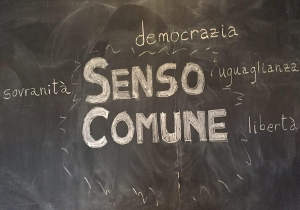 democrazia
sovranità
SENSO
uguaglianza
COMUNE
libertà